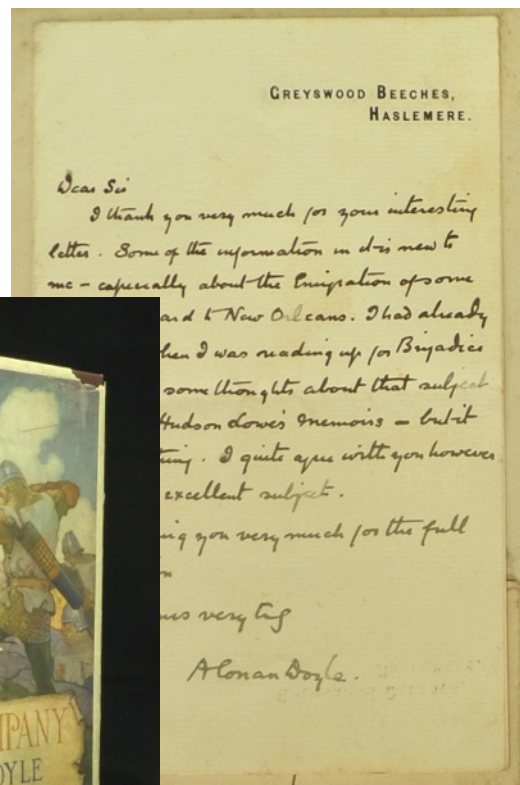 GREYSWOOD BEECHES,
HASLEMERE.
Dear Sir
I thank you very much for your interesting
letter. Some of the information in it is new to
me - especially about the Emigration of some
to New Orleans. I had already
when I was reading up for Brigadier
some thoughts about that subject
Hudson Lowe's Memoirs - but it
I quite agree with you however
excellent subject.
you very much for the full
very
A Conan Doyle.
MPANY
OYLE